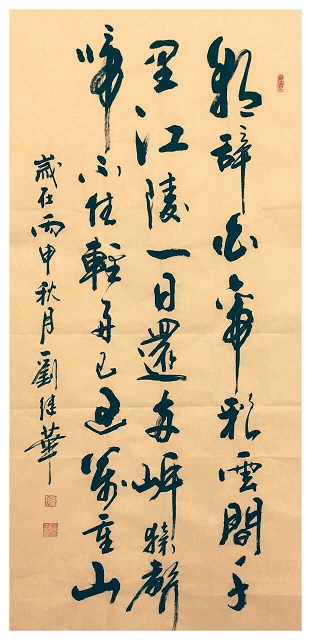 朝辭白帝彩雲間千
里江陵一日還兩岸猿聲
啼不住輕舟已過萬重山
歲在丙申秋月劉佳華